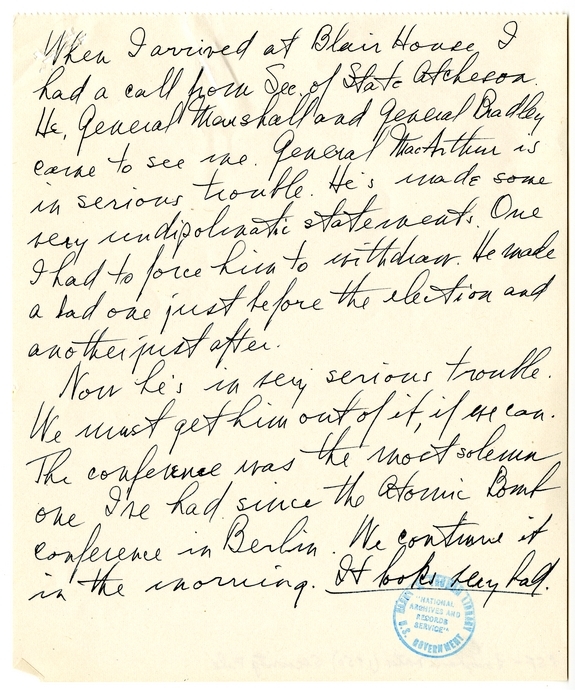 When I arrived at Blair House I
had a call from Sec. of State Atcheson.
He, General Marshall and General Bradley
came to see me. General MacArthur is
in serious trouble. He's made some
very undipolmatic statements. One
I had to force him to withdraw. He made
a bad one just before the election and
another just after.
Now he's in very serious trouble.
We must get him out of it, if we can.
The conference was the most solemn
one I've had since the Atomic Bomb
conference in Berlin. We continue it
in the morning. It looks very bad.
LIBRARY
"NATIONAL
ARCHIVES AND
RECORDS
SERVICE"
U.S. GOVERNMENT